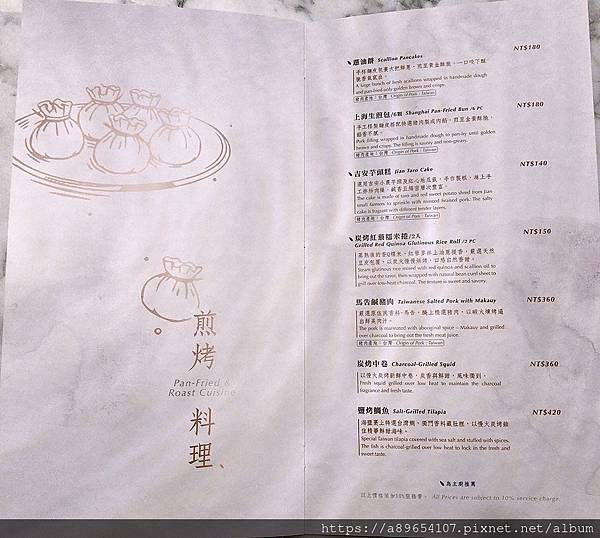 煎烤
Pan-Fried &
Roast Cuisine
料理
蔥油餅 Scallion Pancakes NT$180
手工桿麵皮包裹大把鮮蔥，煎至黃金酥脆，一口咬下酥
脆香氣四溢。
A large bunch of fresh scallions wrapped in handmade dough
and pan-fried until golden brown and crispy.
豬肉產地：台灣 Origin of Pork : Taiwan
上海生煎包/6顆 Shanghai Pan-Fried Bun /6 PC NT$180
Pork filling wrapped in handmade dough to pan-fry until golden
brown and crispy. The filling is savory and non-greasy.
豬肉產地：台灣 Origin of Pork : Taiwan
吉安芋頭糕 Jian Taro Cake NT$140
選用吉安小農芋頭及紅心地瓜簽，手作製糕，撒上手
工炸紅蔥，鹹香且綿密層次豐富。
The cake is made of taro and red sweet potato shred from Jian
small farms to sprinkle with minced braised pork. The salty
cake is fragrant with different tender layers.
豬肉產地：台灣 Origin of Pork : Taiwan
炭烤紅藜糯米捲/2入 NT$150
Grilled Red Quinoa Glutinous Rice Roll /2 PC
蒸熟後的香Q糯米、紅藜麥拌上油蔥提香，嚴選天然
豆皮包覆，以炭火慢慢烘烤，口感自然香甜。
Steam glutinous rice mixed with red quinoa and scallion oil to
bring out the savor, then wrapped with natural bean curd sheet to
grill over low-heat charcoal. The texture is sweet and savory.
馬告鹹豬肉 Taiwanese Salted Pork with Makauy NT$360
嚴選原住民香料-馬告，醃上精選豬肉，以碳火燻烤逼
出鮮美肉汁。
The pork is marinated with aboriginal spice – Makauy and grilled
over charcoal to bring out the fresh meat juice.
豬肉產地：台灣 Origin of Pork : Taiwan
炭烤中卷 Charcoal-Grilled Squid NT$360
以慢火炭烤新鮮中卷，炭香與鮮甜，風味獨到。
Fresh squid grilled over low heat to maintain the charcoal
fragrance and fresh taste.
鹽烤鯛魚 Salt-Grilled Tilapia NT$420
海鹽裹上特選台灣鯛，獨門香料藏肚裡，以慢火炭烤鎖
住精華鮮甜海味。
Special Taiwan tilapia covered with sea salt and stuffed with spices.
The fish is charcoal-grilled over low heat to lock in the fresh and
sweet taste.
為主廚推薦
以上價格須加10%服務費。 All Prices are subject to 10% service charge.
https://a89654107.pixnet.net/album